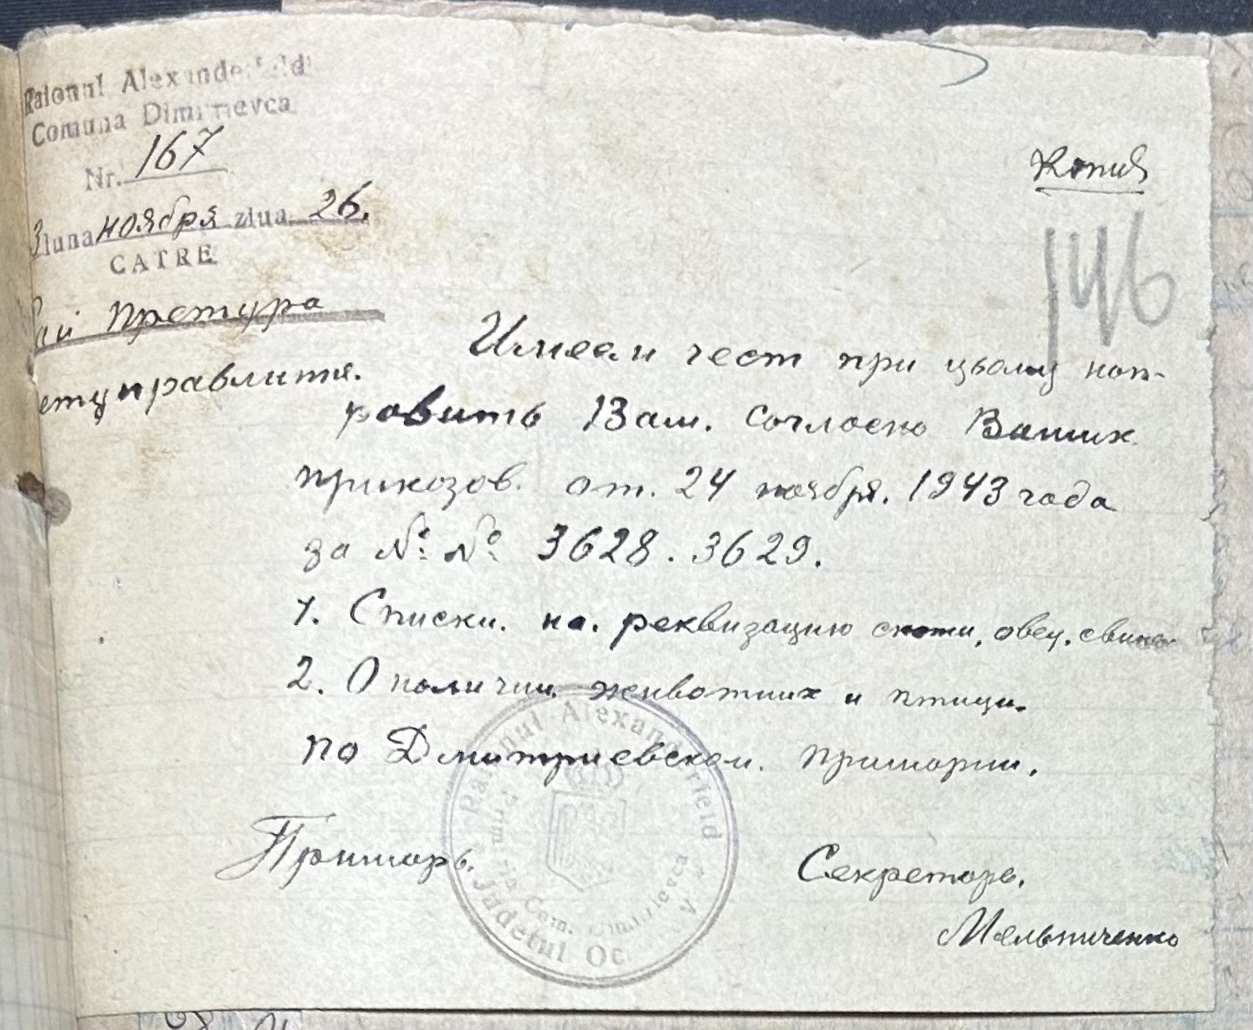 Raionul Alexanderfeld
Comuna Dimitrievca
Nr. 167
Luna ноября ziua 26.
CATRE
Рай Претура
Копия
146
Имеем чест при цьому нап-
равить Вам. согласно Ваших
приказов. от. 24 ноября. 1943 года
за №: №: 3628. 3629.
1. Списки. на. реквизацию скота, овец, свиней
2. О наличии животних и птици.
по Дмитриевском. примории.
Raionul Alexanderfeld
Com. Dimitrievca
Judetul
Примарь.
Секретарь.
Мельниченко